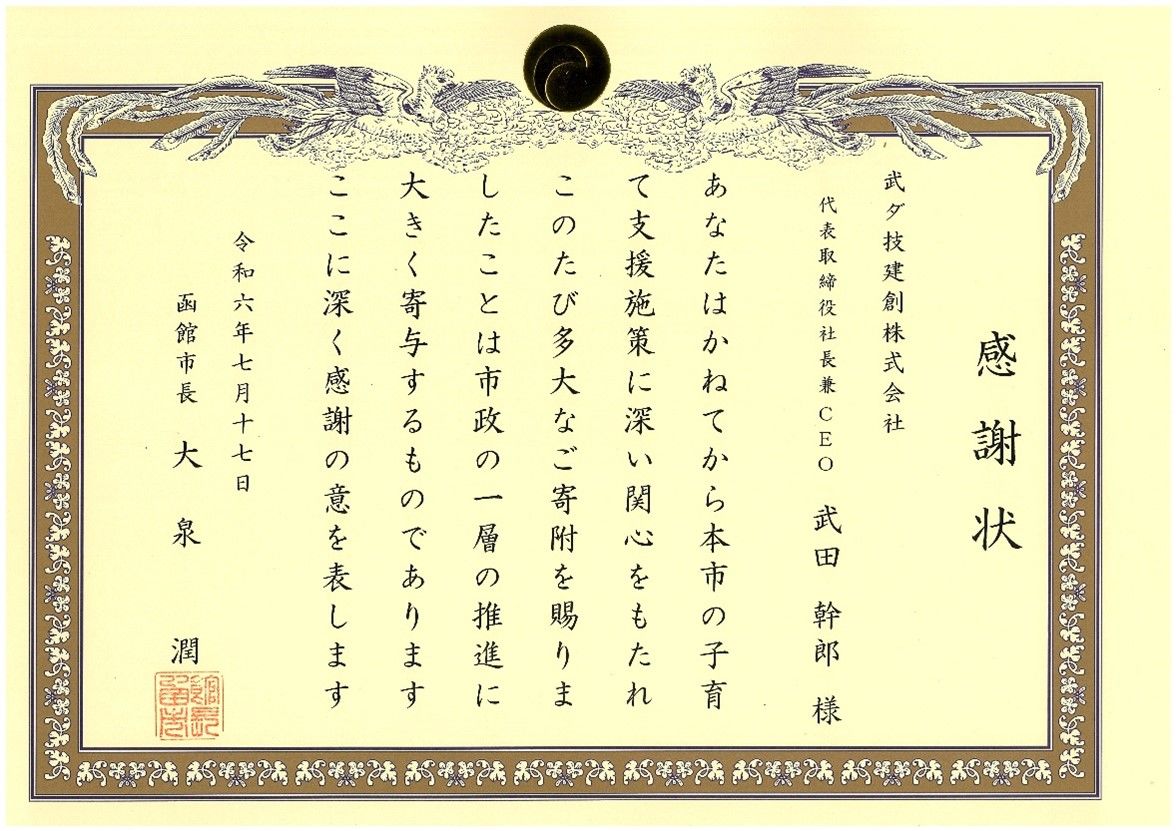 感謝状
武ダ技建創株式会社
代表取締役社長兼CEO 武田 幹郎 様
あなたはかねてから本市の子育
て支援施策に深い関心をもたれ
このたび多大なご寄附を賜りま
したことは市政の一層の推進に
大きく寄与するものであります
ここに深く感謝の意を表します
令和六年七月十七日
函館市長 大泉 潤